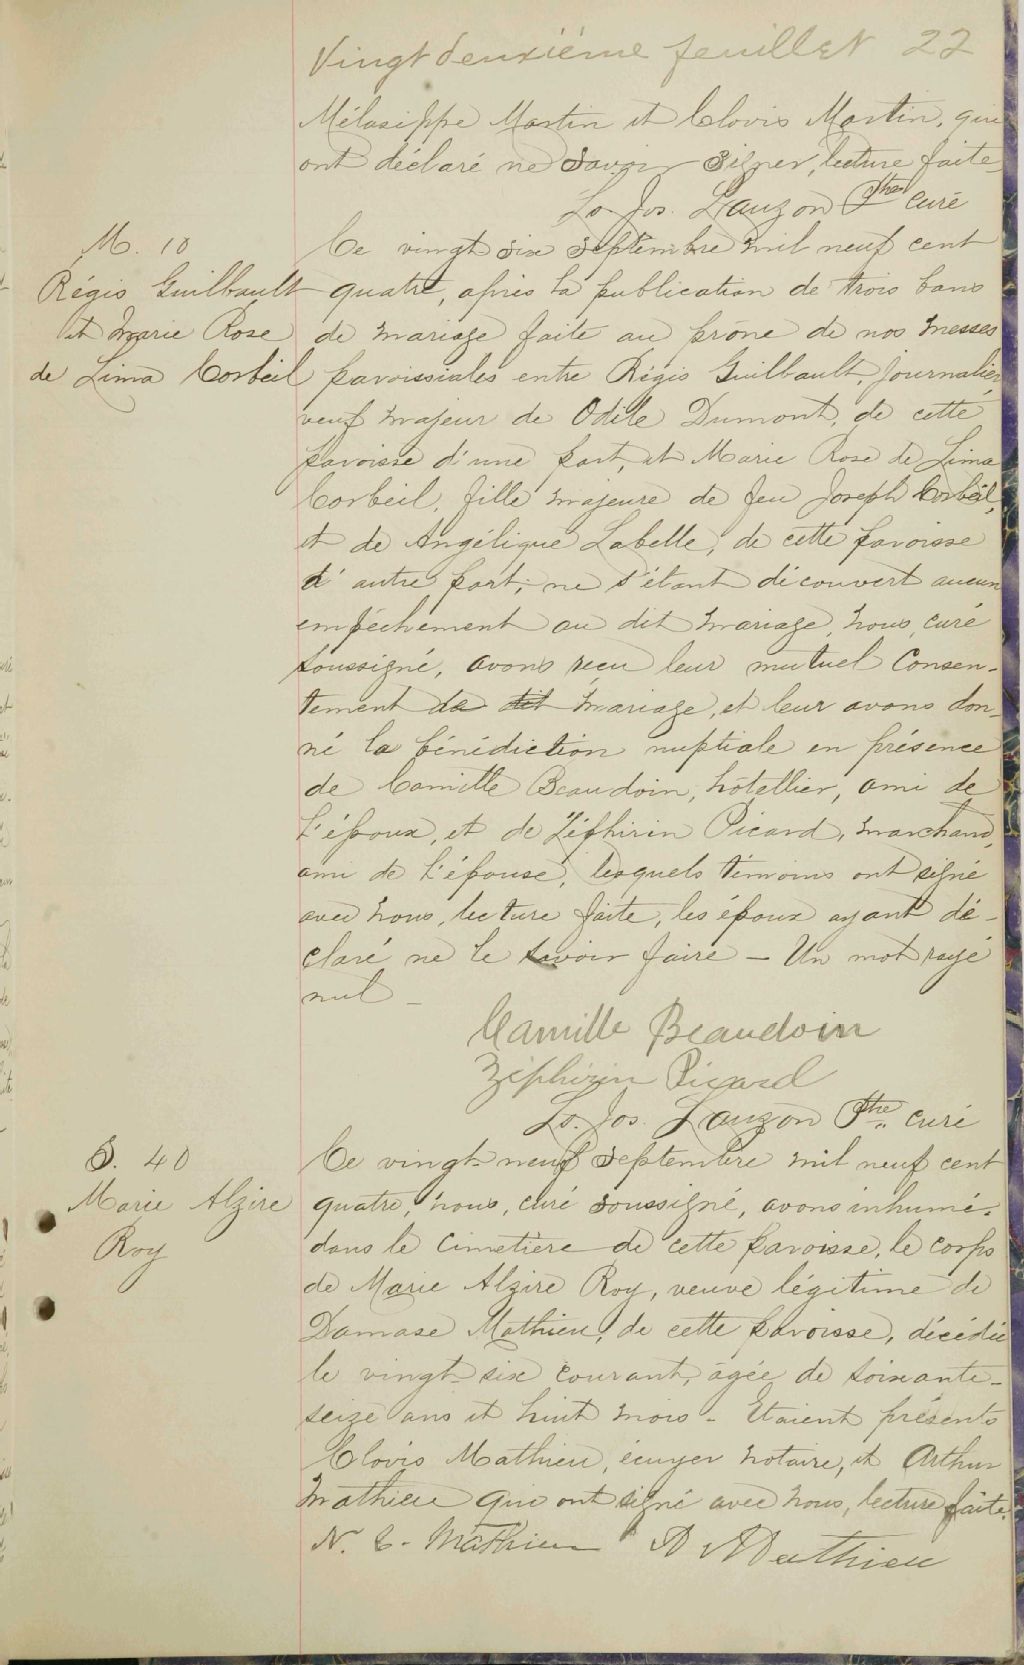 Vingt deuxième feuillet 22
Mélasippe Martin et Clovis Martin, qui
ont déclaré ne savoir signer, lecture faite
Ls. Jos. Lauzon Ptre curé
M. 10
Régis Guilbault
et Marie Rose
de Lima Corbeil
Ce vingt six septembre mil neuf cent
quatre, après la publication de trois bans
de mariage faite au prône de nos messes
paroissiales entre Régis Guilbault, journalier,
veuf majeur de Odile Dumont, de cette
paroisse d'une part, et Marie Rose de Lima
Corbeil, fille majeure de feu Joseph Corbeil,
et de Angélique Labelle, de cette paroisse
d'autre part; ne s'étant découvert aucun
empêchement au dit mariage, nous, curé
soussigné, avons reçu leur mutuel consen-
tement de dit mariage, et leur avons don-
né la bénédiction nuptiale en présence
de Camille Beaudoin, hôtellier, ami de
l'époux, et de Zéphirin Picard, marchand,
ami de l'épouse, lesquels témoins ont signé
avec nous, lecture faite, les époux ayant dé-
claré ne le savoir faire — Un mot rayé
nul —
Camille Beaudoin
Zéphirin Picard
Ls. Jos. Lauzon Ptre curé
S. 40
Marie Alzire
Roy
Ce vingt-neuf septembre mil neuf cent
quatre, nous, curé soussigné, avons inhumé
dans le cimetière de cette paroisse, le corps
de Marie Alzire Roy, veuve légitime de
Damase Mathieu, de cette paroisse, décédée
le vingt-six courant, âgée de soixante-
seize ans et huit mois - Etaient présents
Clovis Mathieu, écuyer notaire, et Arthur
Mathieu qui ont signé avec nous, lecture faite.
N. C. Mathieu A Mathieu